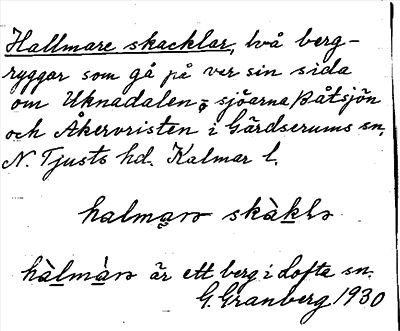 Hallmare skacklar, två berg-
ryggar som gå på var sin sida
om Uknadalen, sjöarna Båtsjön
och Åkervristen i Gärdserums sn,
N. Tjusts hd. Kalmar l.
halmarə skàklə
hàlmàrə är ett berg i Lofta sn.
G. Granberg 1930